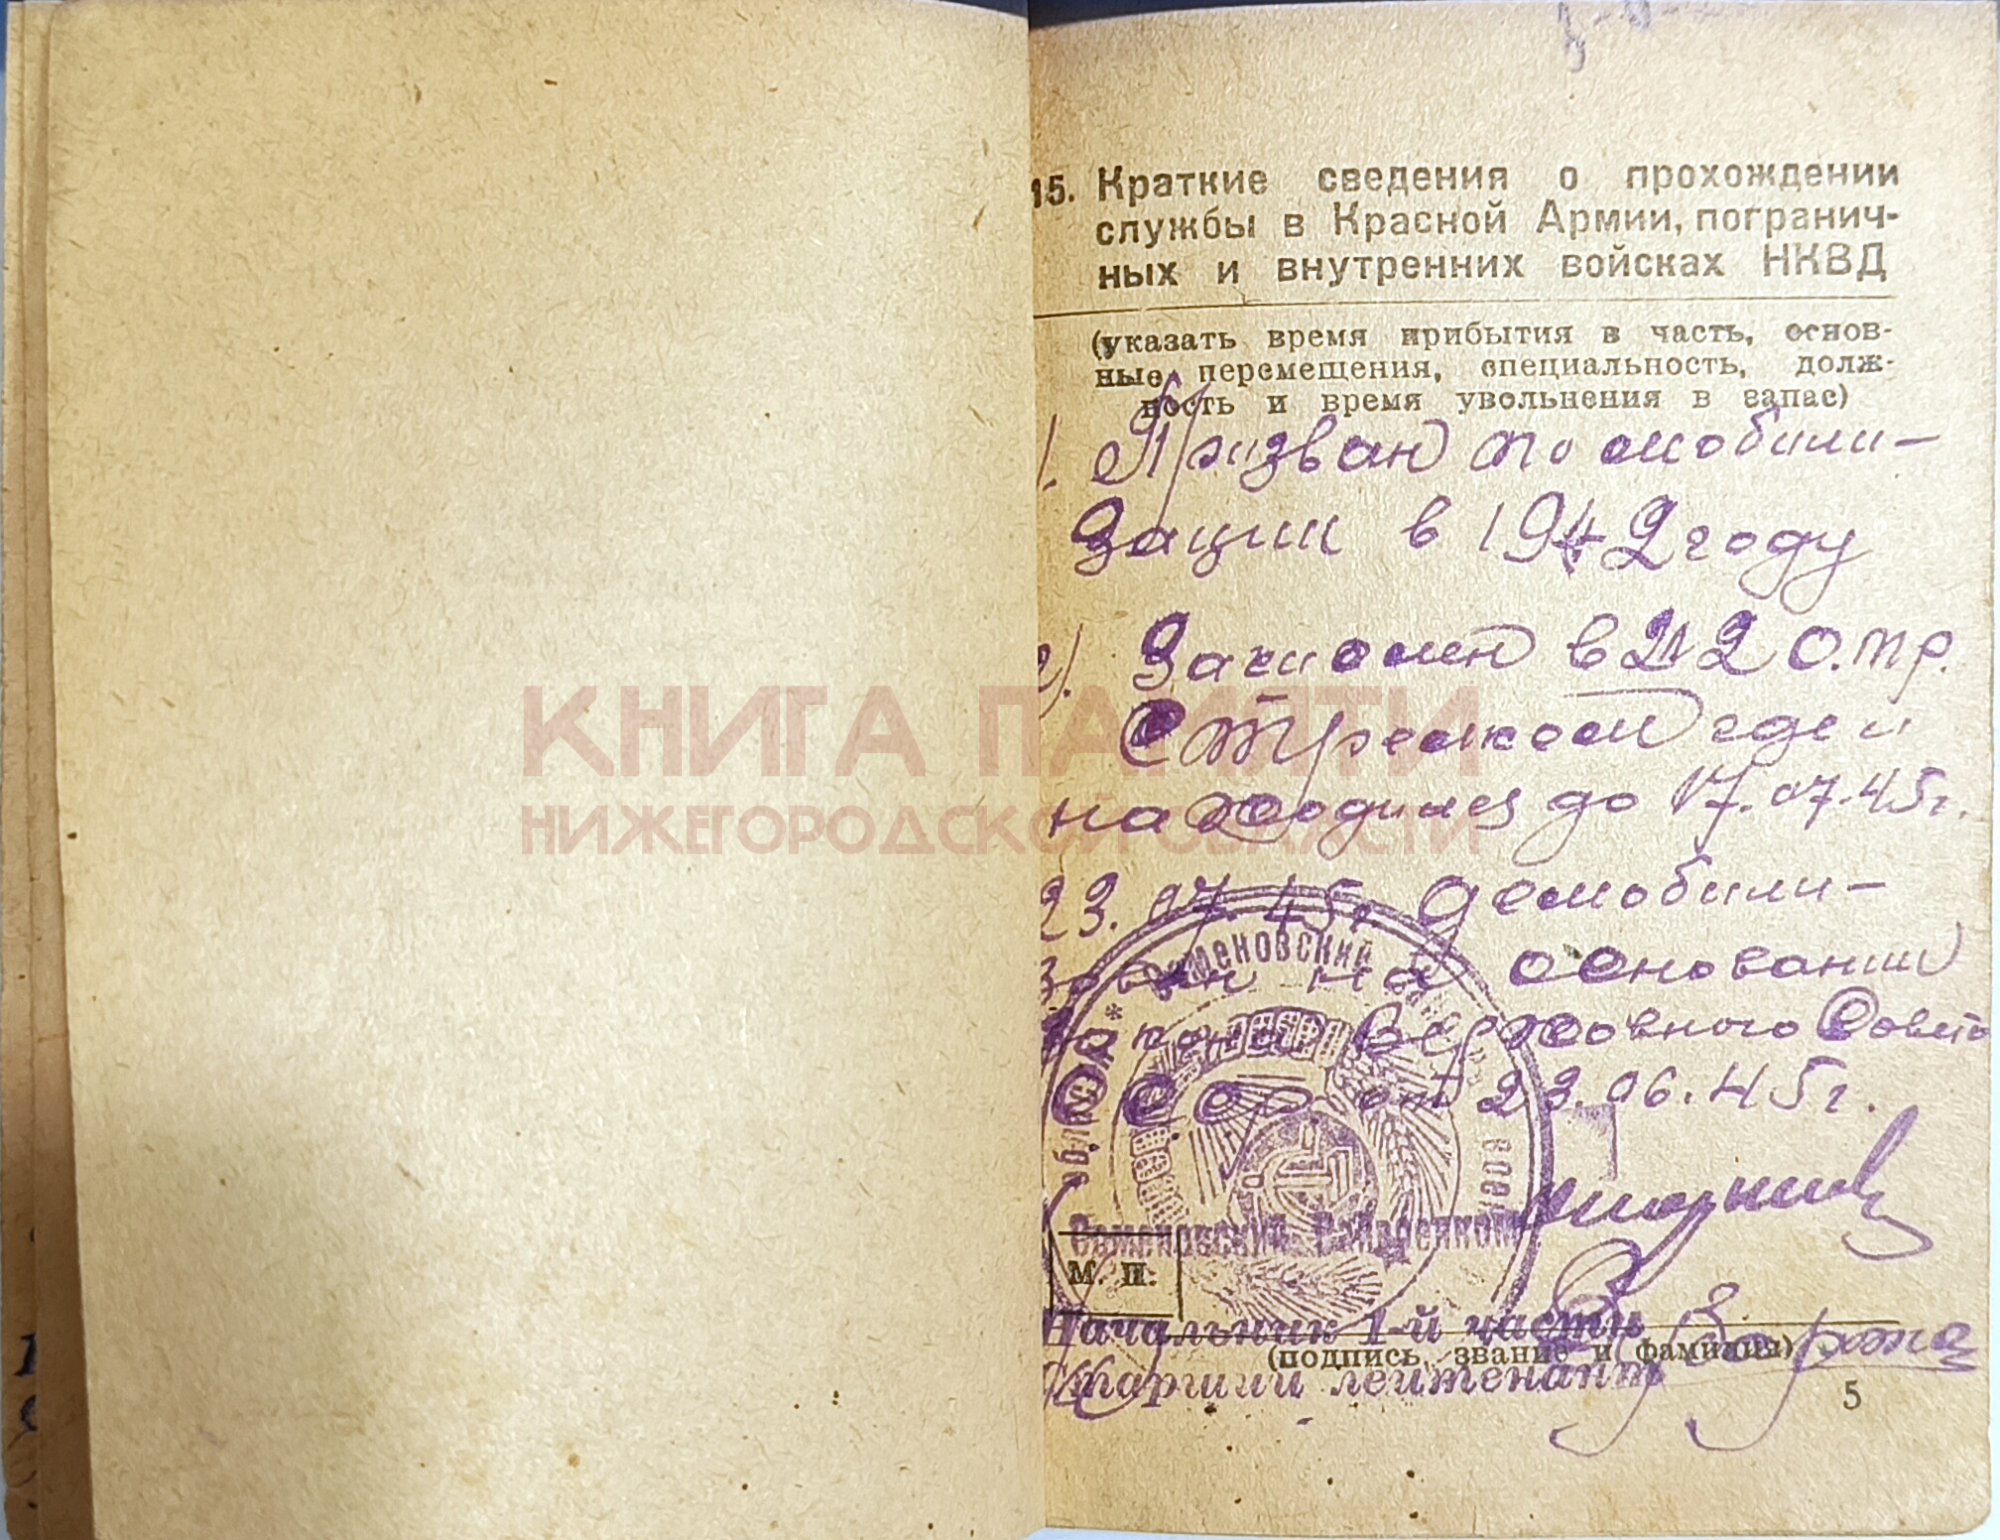 15. Краткие сведения о прохождении
службы в Красной Армии, погранич-
ных и внутренних войсках НКВД
(указать время прибытия в часть, основ-
ные перемещения, специальность, долж-
ность и время увольнения в запас)
1. Призван по мобили-
зации в 1942 году
2). Зачислен в 212 о.тр.
Стрелком где и
находился до 17.07.45г.
23.07.45г. демобили-
зован на основании
Закона Верховного Совета
СССР от 23.06.45г.
КНИГА ПАМЯТИ
НИЖЕГОРОДСКОЙ ОБЛАСТИ
Семеновский
Семеновский Райвоенком
М. П.
Начальник 1-й части
(подпись, звание и фамилия)
Старший лейтенант
5